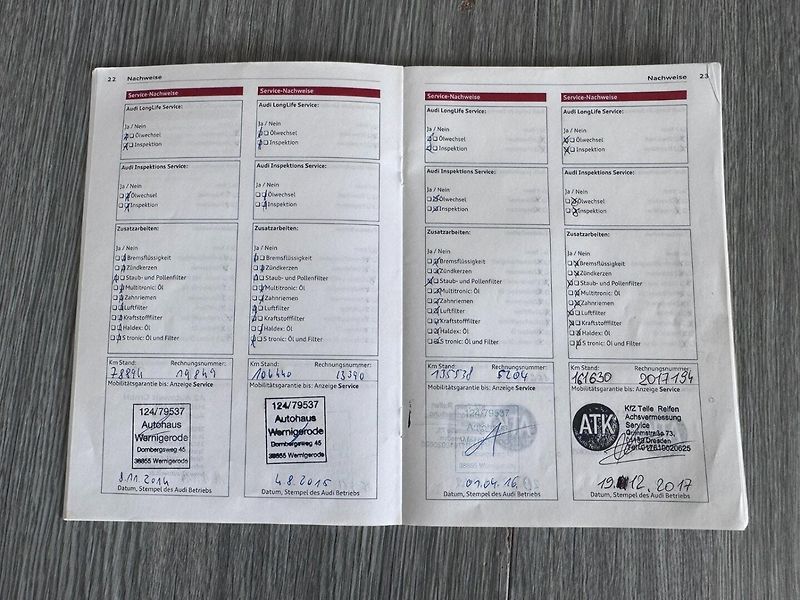 22 Nachweise
Service-Nachweise
Audi LongLife Service:
Ja / Nein
Ölwechsel
Inspektion
Audi Inspektions Service:
Ja / Nein
Ölwechsel
Inspektion
Zusatzarbeiten:
Ja / Nein
Bremsflüssigkeit
Zündkerzen
Staub- und Pollenfilter
Multitronic: Öl
Zahnriemen
Luftfilter
Kraftstofffilter
Haldex: Öl
S tronic: Öl und Filter
Km Stand: Rechnungsnummer:
78894 19849
Mobilitätsgarantie bis: Anzeige Service
124/79537
Autohaus
Wernigerode
Dornbergsweg 45
38855 Wernigerode
8.11.2014
Datum, Stempel des Audi Betriebs
Service-Nachweise
Audi LongLife Service:
Ja / Nein
Ölwechsel
Inspektion
Audi Inspektions Service:
Ja / Nein
Ölwechsel
Inspektion
Zusatzarbeiten:
Ja / Nein
Bremsflüssigkeit
Zündkerzen
Staub- und Pollenfilter
Multitronic: Öl
Zahnriemen
Luftfilter
Kraftstofffilter
Haldex: Öl
S tronic: Öl und Filter
Km Stand: Rechnungsnummer:
13390
Mobilitätsgarantie bis: Anzeige Service
124/79537
Autohaus
Wernigerode
Dornbergsweg 45
38855 Wernigerode
4.8.2015
Datum, Stempel des Audi Betriebs
Nachweise 23
Service-Nachweise
Audi LongLife Service:
Ja / Nein
Ölwechsel
Inspektion
Audi Inspektions Service:
Ja / Nein
Ölwechsel
Inspektion
Zusatzarbeiten:
Ja / Nein
Bremsflüssigkeit
Zündkerzen
Staub- und Pollenfilter
Multitronic: Öl
Zahnriemen
Luftfilter
Kraftstofffilter
Haldex: Öl
S tronic: Öl und Filter
Km Stand: Rechnungsnummer:
135531 5204
Mobilitätsgarantie bis: Anzeige Service
124/79537
01.04.16
Datum, Stempel des Audi Betriebs
Service-Nachweise
Audi LongLife Service:
Ja / Nein
Ölwechsel
Inspektion
Audi Inspektions Service:
Ja / Nein
Ölwechsel
Inspektion
Zusatzarbeiten:
Ja / Nein
Bremsflüssigkeit
Zündkerzen
Staub- und Pollenfilter
Multitronic: Öl
Zahnriemen
Luftfilter
Kraftstofffilter
Haldex: Öl
S tronic: Öl und Filter
Km Stand: Rechnungsnummer:
161630 2017194
Mobilitätsgarantie bis: Anzeige Service
ATK
KfZ Teile Reifen
Achsvermessung
Service
Dresden
19.12.2017
Datum, Stempel des Audi Betriebs